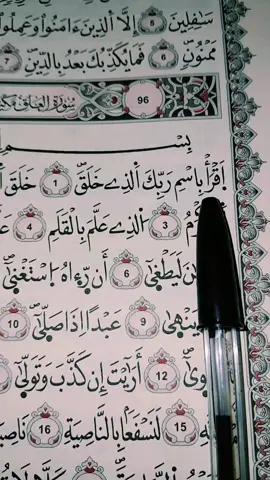 سَٰفِلِينَ 5 إِلَّا اَلذِينَ ءَامَنُواْ وَعَمِلُوا
مَمْنُونٍ 6 فَمَا يُكَذِّبُكَ بَعْدُ بِالدِّينِ 7
96 سُورَةُ العَلَقِ
بِسْمِ
اَ۪قْرَأْ بِاسْمِ رَبِّكَ اَلذِے خَلَقَ 1 خَلَقَ
3 اَلذِے عَلَّمَ بِالْقَلَمِ 4
لَيَطْغ۪يٰٓ 6 أَن رَّء۪اهُ اُ۪سْتَغْن۪يٰٓ
يَنْه۪يٰ 9 عَبْداً اِذَا صَلّ۪يٰٓ 10
12 أَرَٰٓيْتَ إِن كَذَّبَ وَتَوَلّ۪يٰٓ
15 لَنَسْفَعاً بِالنَّاصِيَةِ 16